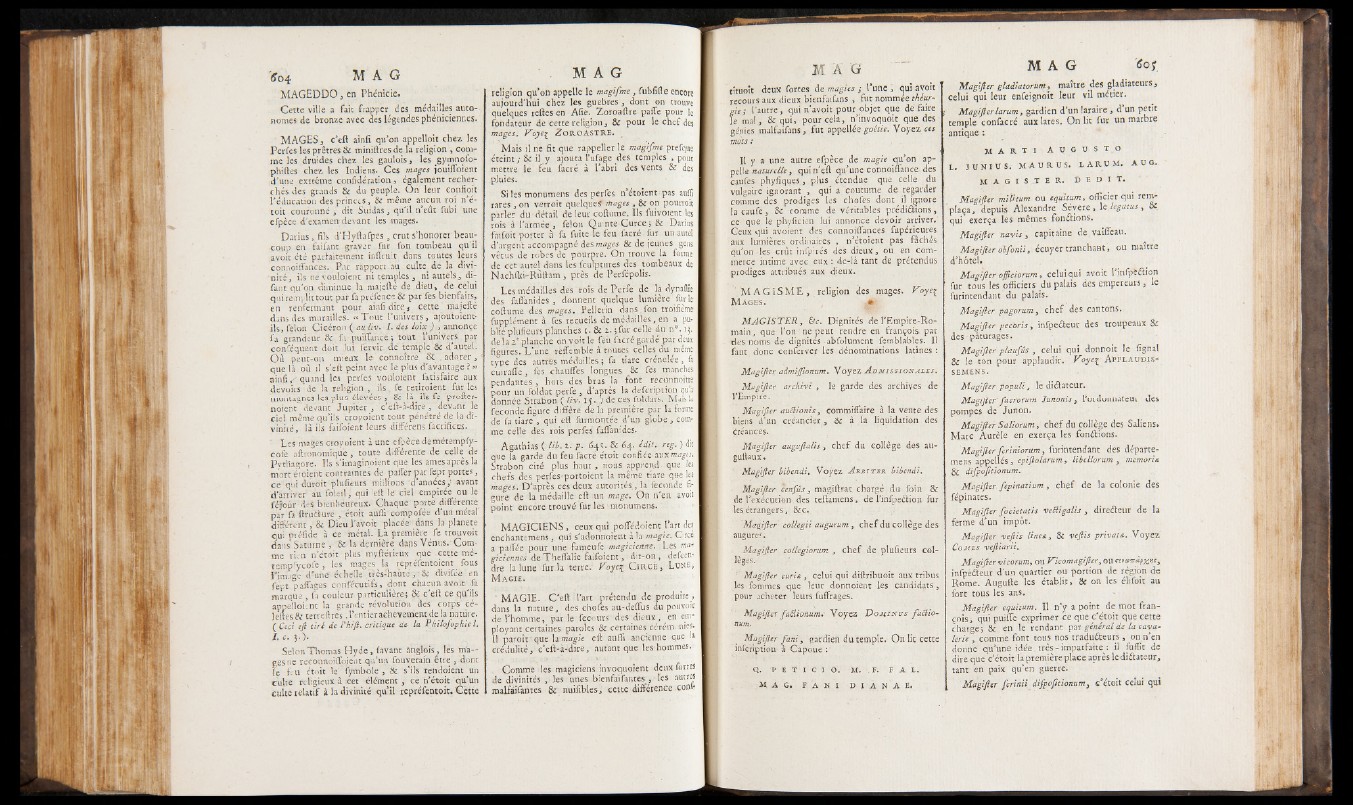 604 M A G
MAGEDDO, en Phénicie.
Cette ville a fait frapper des médailles auto-
nomes de bronze avec des légendes phéniciennes.
MAGES, c'eſt ainſi qu'on appelloit chez les
Perſes les prêtres & miniſtres de la religion, com-
me les druides chez les gaulois, les gymnoſo-
phiſtes chez les Indiens. Ces mages jouiſſoient
d'une extrême conſidération, également recher-
chés des grands & du peuple. On leur confioit
l'éducation des princes, & même aucun roi n'é-
toit couronné, dit Suidas, qu'il n'eût ſubi une
eſpèce d'examen devant les mages.
Darius, fils d'Hyſtaſpes, crut s'honorer beau-
coup en faiſant graver ſur ſon tombeau qu'il
avoit été parfaitement inſtruit dans toutes leurs
connoiſſances. Par rapport au culte de la divi-
nité, ils ne vouloient ni temples, ni autels, di-
ſant qu'on diminue la majeſté de dieu, de celui
qui remplit tout par ſa préſence & par ſes bienfaits,
en renfermant pour ainſi dire, cette majeſté
dans des murailles. « Tout l'univers, ajoutoient-
ils, ſelon Cicéron (au liv. I. des loix), annonce
ſa grandeur & ſa puiſſance; tout l'univers par
conſéquent doit lui ſervir de temple & d'autel.
Où peut-on mieux le connoître & adorer,
que là où il s'eſt peint avec le plus d'avantage? »
ainſi, quand les perſes vouloient ſatisfaire aux
devoirs de la religion, ils ſe retiroient ſur les
montagnes les plus élevées, & là ils ſe proſter-
noient devant Jupiter, c'eſt-à-dire, devant le
ciel même qu'ils croyoient tout pénétré de la di-
vinité, là ils faiſoient leurs différens ſacrifices.
Les mages croyoient à une eſpèce de métempſy-
coſe aſtronomique, toute différente de celle de
Pythagore. Ils s'imaginoient que les ames après la
mort étoient contraintes de paſſer par ſept portes,
ce qui duroit pluſieurs millions d'années, avant
d'arriver au ſoleil, qui eſt le ciel empirée ou le
ſéjour des bienheureux. Chaque porte différente
par ſa ſtructure, étoit auſſi compoſée d'un métal
différent, & Dieu l'avoit placée dans la planete
qui préſide à ce métal. La première ſe trouvoit
dans Saturne, & la dernière dans Vénus. Com-
me rien n'étoit plus myſtérieux que cette mé-
tempſycoſe, les mages la repréſentoient ſous
l'image d'une échelle très-haute, & diviſée en
ſept paſſages conſécutifs, dont chacun avoit ſa
marque, ſa couleur particulière; & c'eſt ce qu'ils
appelloient la grande révolution des corps cé-
leſtes & terreſtres, l'entier achevement de la nature.
(Ceci eſt tiré de l'hiſt. critique de la Philoſophie l.
I, c. 3.).
Selon Thomas Hyde, ſavant anglois, les ma-
ges ne reconnoiſſoient qu'un ſouverain être, dont
le feu étoit le ſymbole, & s'ils rendoient un
culte religieux à cet élément, ce n'étoit qu'un
culte relatif à la divinité qu'il repréſentoit. Cette
M A G
religion qu'on appelle le magiſme, ſubſiſte encore
aujourd'hui chez les guebres, dont on trouve
quelques reſtes en Aſie. Zoroaſtre paſſe pour le
fondateur de cette religion, & pour le chef des
mages. Voyez ZOROASTRE.
Mais il ne fit que rappeller le magiſme preſque
éteint; & il y ajouta l'uſage des temples, pour
mettre le feu ſacré à l'abri des vents & des
pluies.
Si les monumens des perſes n'étoient pas auſſi
rares, on verroit quelques mages, & on pourroit
parler du détail de leur coſtume. Ils ſuivoient les
rois à l'armée, ſelon Quinte Curce; & Darius
faiſoit porter à ſa ſuite le feu ſacré ſur un autel
d'argent accompagné des mages & de jeunes gens
vêtus de robes de pourpre. On trouve la forme
de cet autel dans les ſculptures des tombeaux de
Nachſki-Ruſtam, près de Perſépolis.
Les médailles des rois de Perſe de la dynaſtie
des ſaſſanides, donnent quelque lumière ſur le
coſtume des mages. Pellerin dans ſon troiſième
ſupplément à ſes recueils de médailles, en a pu-
blié pluſieurs planches 1. & 2.; ſur celle du n°. 13.
de la 2e planche on voit le feu ſacré gardé par deux
figures. L'une reſſemble à toutes celles du même
type des autres médailles; ſa tiare crénelée, ſa
cuiraſſe, ſes chauſſes longues & ſes manches
pendantes, hors des bras la font reconnoître
pour un ſoldat perſe, d'après la deſcription qu'a
donnée Strabon (liv. 15.) de ces ſoldats. Mais la
ſeconde figure diffère de la première par la forme
de ſa tiare, qui eſt ſurmontée d'un globe, com-
me celle des rois perſes ſaſſanides.
Agathias (lib. 2. p. 645. & 64. édit. reg.) dit
que la garde du feu ſacré étoit confiée aux mages.
Strabon cité plus haut, nous apprend que les
chefs des perſes portoient la même tiare que les
mages. D'après ces deux autorités, la ſeconde fi-
gure de la médaille eſt un mage. On n'en avoit
point encore trouvé ſur les monumens.
MAGICIENS, ceux qui poſſédoient l'art des
enchantemens, qui s'adonnoient à la magie. Circé
a paſſée pour une fameuſe magicienne. Les ma-
giciennes de Theſſalie faiſoient, dit-on, deſcen-
dre la lune ſur la terre. Voyez CIRCE, LUNE,
MAGIE.
MAGIE. C'eſt l'art prétendu de produire,
dans la nature, des choſes au-deſſus du pouvoir
de l'homme, par le ſecours des dieux, en em-
ployant certaines paroles & certaines cérémonies.
Il paroît que la magie eſt auſſi ancienne que la
crédulité, c'eſt-à-dire, autant que les hommes.
Comme les magiciens invoquoient deux ſortes
de divinités, les unes bienfaiſantes, les autres
malfaiſantes & nuiſibles, cette différence conſ-
M A G
tituoit deux ſortes de magies; l'une, qui avoit
recours aux dieux bienfaiſans, fut nommée théur-
gie; l'autre, qui n'avoit pour objet que de faire
le mal, & qui, pour cela, n'invoquoit que des
génies malfaiſans, fut appellée goëtie. Voyez ces
mots :
Il y a une autre eſpèce de magie qu'on ap-
pelle naturelle, qui n'eſt qu'une connoiſſance des
cauſes phyſiques, plus étendue que celle du
vulgaire ignorant, qui a coutume de regarder
comme des prodiges les choſes dont il ignore
la cauſe, & comme de véritables prédictions,
ce que le phyſicien lui annonce devoir arriver.
Ceux qui avoient des connoiſſances ſupérieures
aux lumières ordinaires, n'étoient pas fâchés
qu'on les crût inſpirés des dieux, ou en com-
merce intime avec eux : de-là tant de prétendus
prodiges attribués aux dieux.
MAGISME, religion des mages. Voyez
MAGES.
MAGISTER, &c. Dignités de l'Empire-Ro-
main, que l'on ne peut rendre en françois par
des noms de dignités abſolument ſemblables. Il
faut donc conſerver les dénominations latines :
Magiſter admiſſionum. Voyez ADMISSIONALES.
Magiſter archivi, le garde des archives de
l'Empire.
Magiſter auctionis, commiſſaire à la vente des
biens d'un créancier, & à la liquidation des
créances.
Magiſter auguſtalis, chef du collège des au-
guſtaux.
Magiſter bibendi. Voyez ARBITER bibendi.
Magiſter cenſûs, magiſtrat chargé du ſoin &
de l'exécution des teſtamens, de l'inſpection ſur
les étrangers, &c.
Magiſter collegii augurum, chef du collège des
augures.
Magiſter collegiorum, chef de pluſieurs col-
lèges.
Magiſter curiæ, celui qui diſtribuoit aux tribus
les ſommes que leur donnoient les candidats,
pour acheter leurs ſuffrages.
Magiſter factionum. Voyez DOMINUS factio-
num.
Magiſter fani, gardien du temple. On lit cette
inſcription à Capoue :
Q. PETICIO. M. F. FAL.
MAG. FANI DIANAE.
M A G 605
Magiſter gladiatorum, maître des gladiateurs,
celui qui leur enſeignoit leur vil métier.
Magiſter larum, gardien d'un laraire, d'un petit
temple conſacré aux lares. On lit ſur un marbre
antique :
MARTI AUGUSTO
L. JUNIUS. MAURUS. LARUM. AUG.
MAGISTER. DEDIT.
Magiſter militum ou equitum, officier qui rem-
plaça, depuis Alexandre Sévere, le legatus, &
qui exerça les mêmes fonctions.
Magiſter navis, capitaine de vaiſſeau.
Magiſter obſonii, écuyer tranchant, ou maître
d'hôtel.
Magiſter officiorum, celui qui avoit l'inſpection
ſur tous les officiers du palais des empereurs, le
ſurintendant du palais.
Magiſter pagorum, chef des cantons.
Magiſter pecoris, inſpecteur des troupeaux &
des pâturages.
Magiſter plauſûs, celui qui donnoit le ſignal
& le ton pour applaudir. Voyez APPLAUDIS-
SEMENS.
Magiſter populi, le dictateur.
Magiſter ſacrorum Junonis, l'ordonnateur des
pompes de Junon.
Magiſter Saliorum, chef du collège des Saliens.
Marc Aurèle en exerça les fonctions.
Magiſter ſcriniorum, ſurintendant des départe-
mens appellés, epiſtolarum, libellorum, memoriæ
& diſpoſitionum.
Magiſter ſepinatium, chef de la colonie des
ſépinates.
Magiſter ſocietatis vectigalis, directeur de la
ferme d'un impôt.
Magiſter veſtis lineæ, & veſtis privatæ. Voyez
COMES veſtiarii.
Magiſter vicorum, ou Vicomagiſter, ou
inſpecteur d'un quartier ou portion de région de
Rome. Auguſte les établit, & on les éliſoit au
ſort tous les ans.
Magiſter equitum. Il n'y a point de mot fran-
çois, qui puiſſe exprimer ce que c'étoit que cette
charge; & en le rendant par général de la cava-
lerie, comme font tous nos traducteurs, on n'en
donne qu'une idée très-imparfaite : il ſuffit de
dire que c'étoit la première place après le dictateur,
tant en paix qu'en guerre.
Magiſter ſcrinii diſpoſitionum, c'étoit celui qui